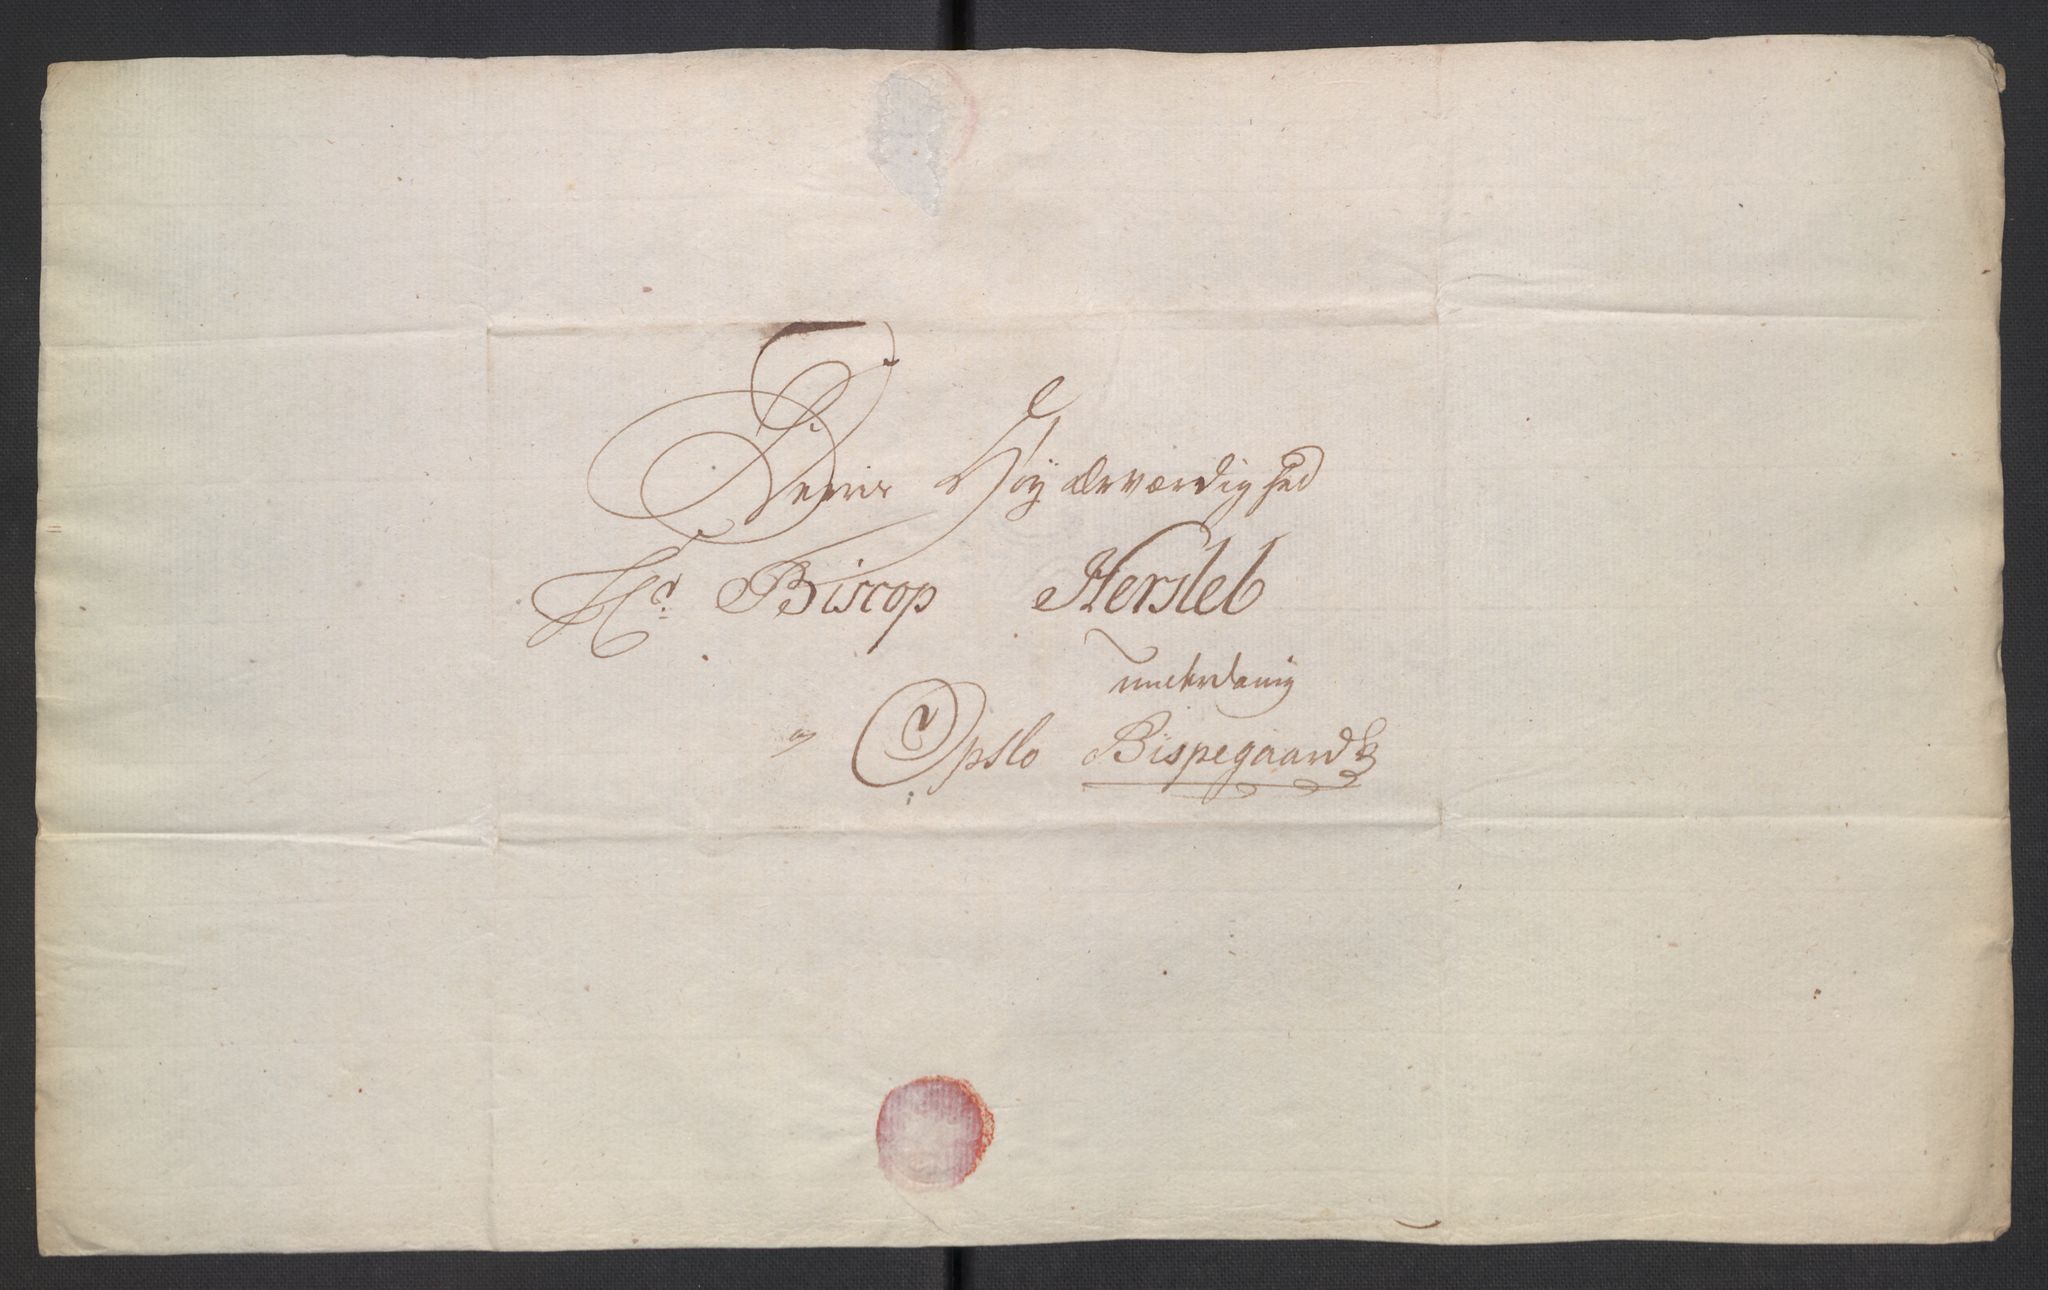 Deris Høyærværdighed
Hr. Biscop Hersleb
underdanig
Opslo Bispegaard